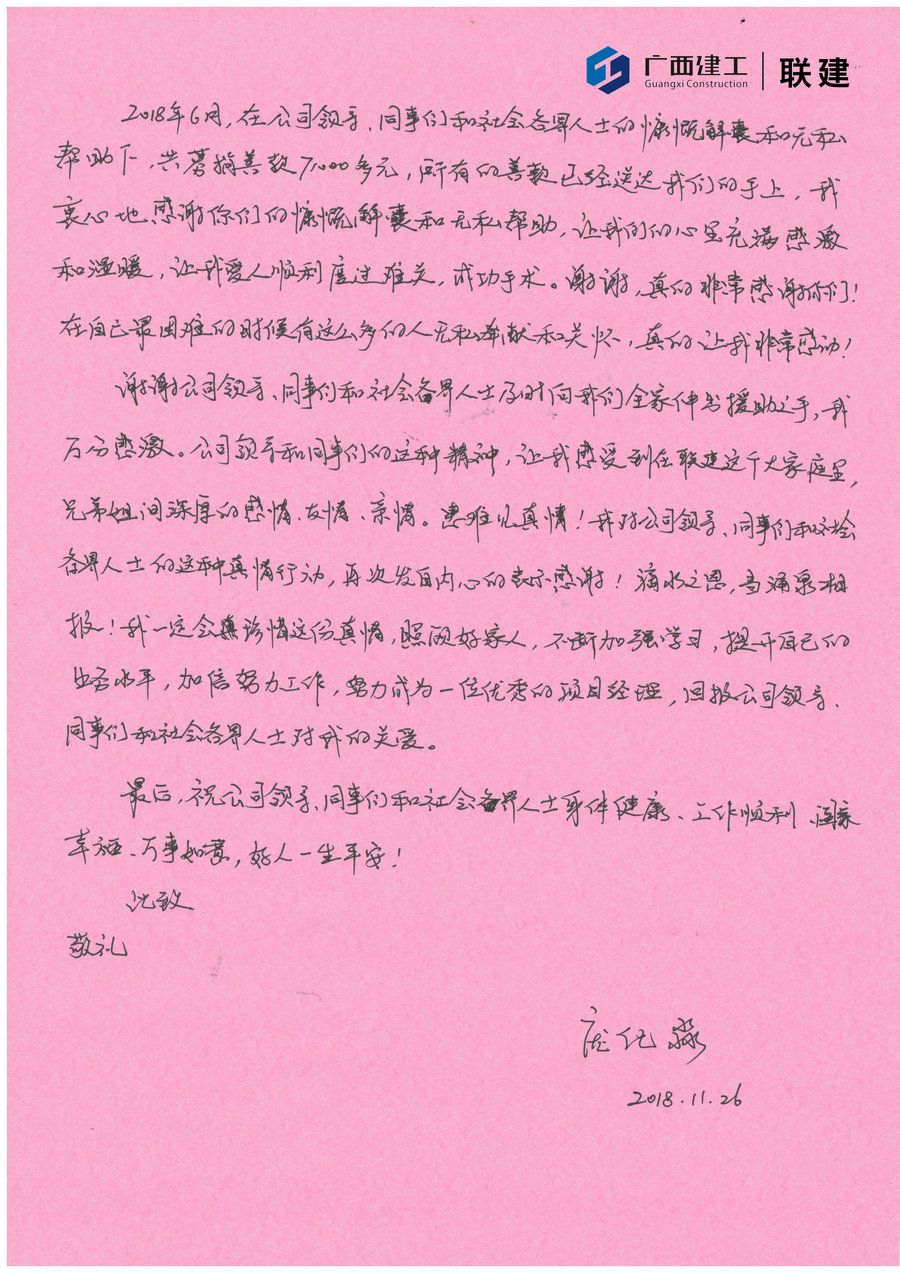 广西建工 联建
Guangxi Construction
2018年6月,在公司领导、同事们和社会各界人士的慷慨解囊和无私
帮助下,共募捐善款71000多元,所有的善款已经送达我们的手上,我
衷心地感谢你们的慷慨解囊和无私帮助,让我们的心里充满感激
和温暖,让我爱人顺利度过难关,成功手术。谢谢,真的非常感谢你们!
在自己最困难的时候有这么多的人无私奉献和关怀,真的让我非常感动!
谢谢公司领导、同事们和社会各界人士及时向我们全家伸出援助之手,我
万分感激。公司领导和同事们的这种精神,让我感受到在联建这个大家庭里,
兄弟姐间深厚的感情、友情、亲情。患难见真情!我对公司领导、同事们和社会
各界人士的这种真情行动,再次发自内心的表示感谢!滴水之恩,当涌泉相
报!我一定会珍惜这份真情,照顾好家人,不断加强学习,提升自己的
业务水平,加倍努力工作,努力成为一位优秀的项目经理,回报公司领导、
同事们和社会各界人士对我的关爱。
最后,祝公司领导、同事们和社会各界人士身体健康、工作顺利、阖家
幸福、万事如意,好人一生平安!
此致
敬礼
2018.11.26